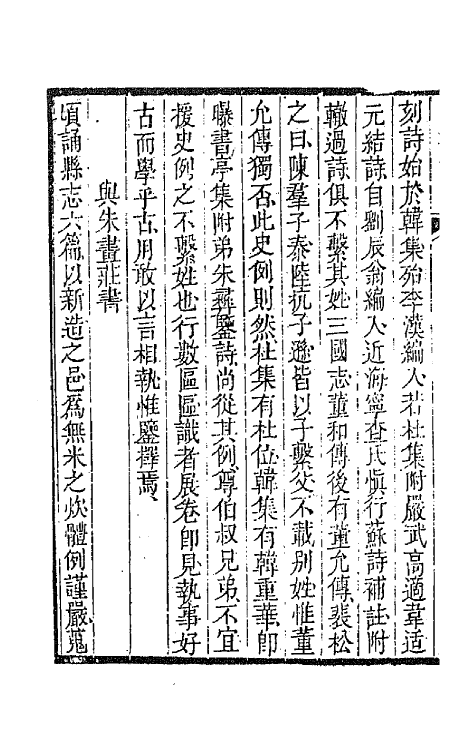 刻詩始於韓集殆李漢編入若杜集附嚴武高適韋迢
元結詩自劉辰翁編入近海寧查氏慎行蘇詩補註附
轍過詩俱不繫其姓三國志董和傳後有董允傳裴松
之曰陳羣子泰陸抗子遜皆以子繫父不載別姓惟董
允傳獨否此史例則然杜集有杜位韓集有韓重華卽
曝書亭集附弟朱彞鑒詩尚從其例尊伯叔兄弟不宜
援史例之不繫姓也行數區區識者展卷卽見執事好
古而學乎古用敢以言相執惟鑒擇焉
與朱晝莊書
頃誦縣志六篇以新造之邑爲無米之炊體例謹嚴蒐